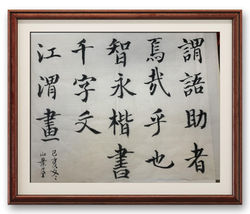 謂語助者
焉哉乎也
智永楷書
千字文
江渭畫